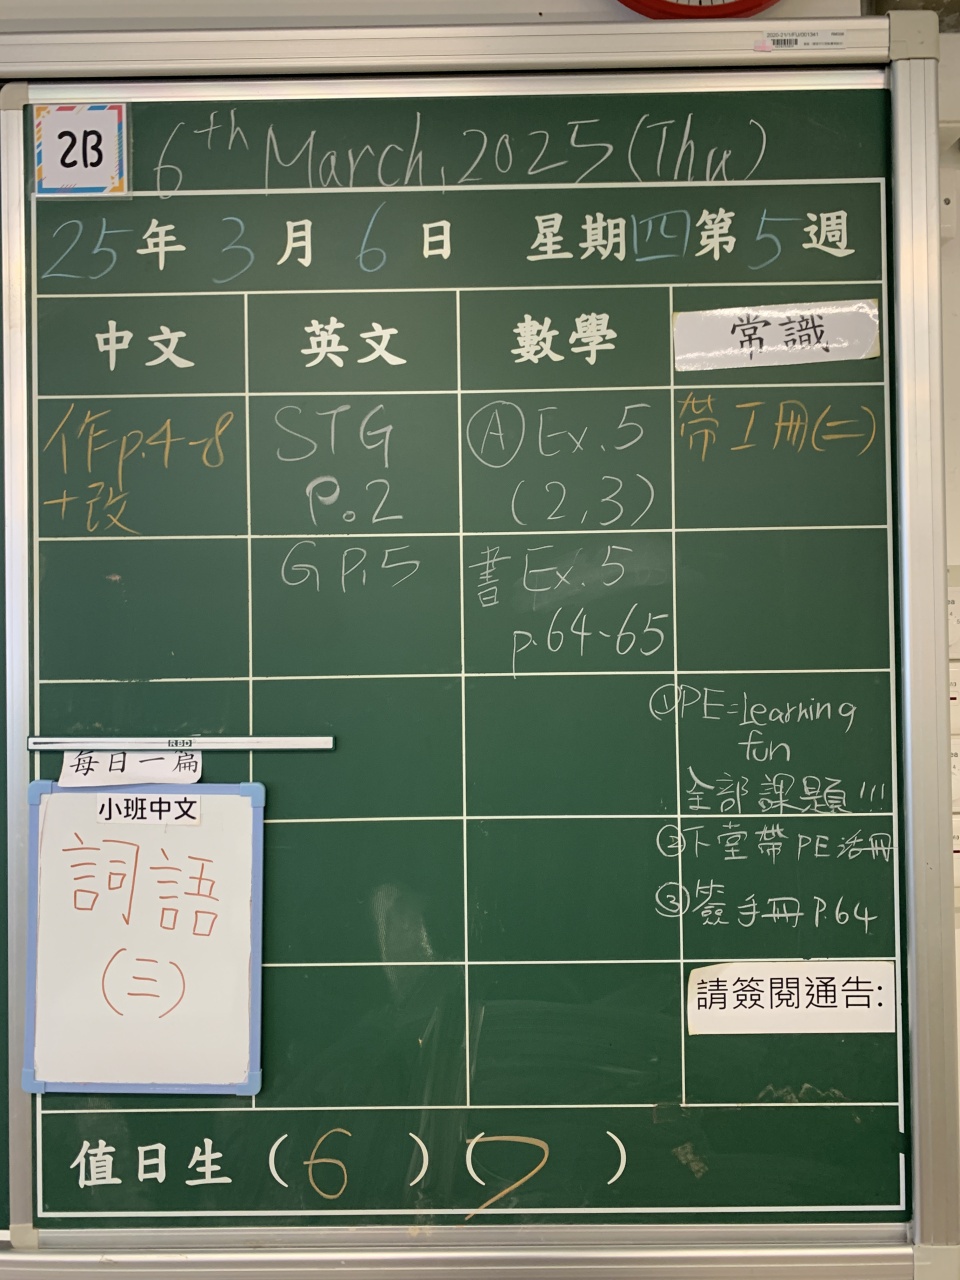 2B
6th March, 2025 (Thu)
25年3月6日 星期四第5週
中文 英文 數學 常識
作p.4-8
+改
STG
P.2
G P.5
Ⓐ Ex.5
(2,3)
書 Ex.5
p.64-65
帶工冊(二)
①PE=learning
fun
全部課題!!!
②下堂帶PE活冊
③簽手冊P.64
請簽閱通告:
RBD
每日一篇
小班中文
詞語
(三)
值日生 (6) (7)